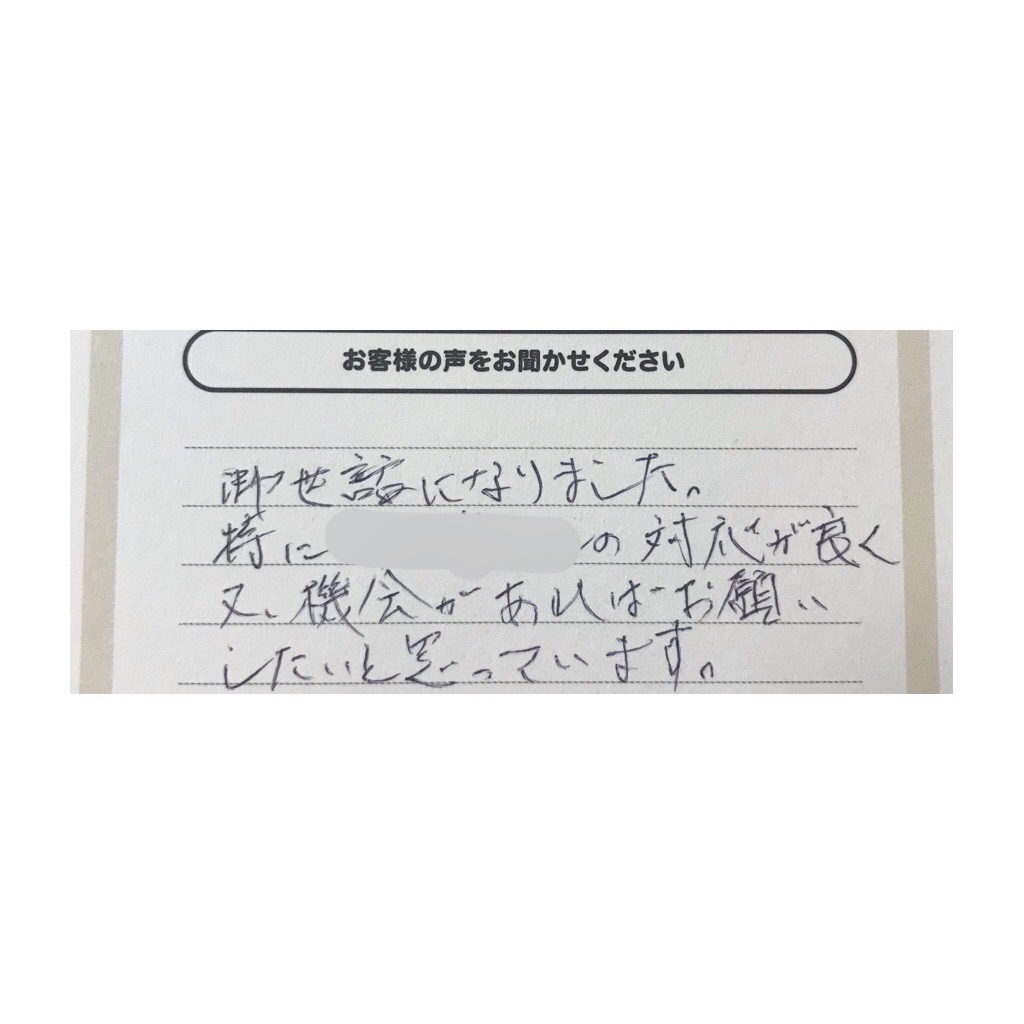 お客様の声をお聞かせください
御世話になりました。
特に の対応が良く
又、機会があればお願い
したいと思っています。